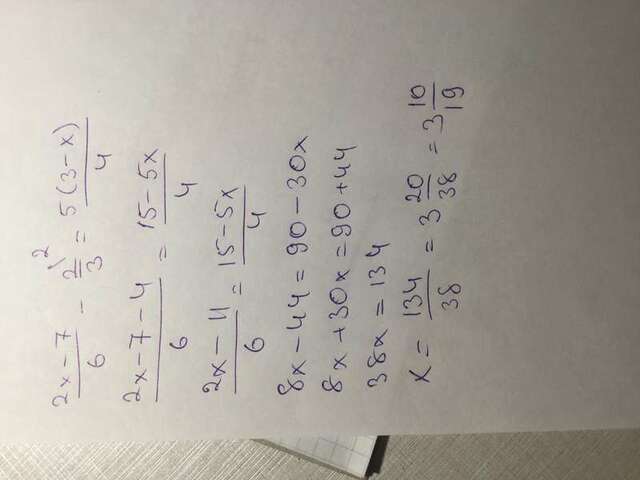 (2x-7)/6 - 2/3 \² = 5(3-x)/4
(2x-7-4)/6 = (15-5x)/4
(2x-11)/6 = (15-5x)/4
8x-44=90-30x
8x+30x=90+44
38x=134
x=134/38=3 20/38=3 10/19